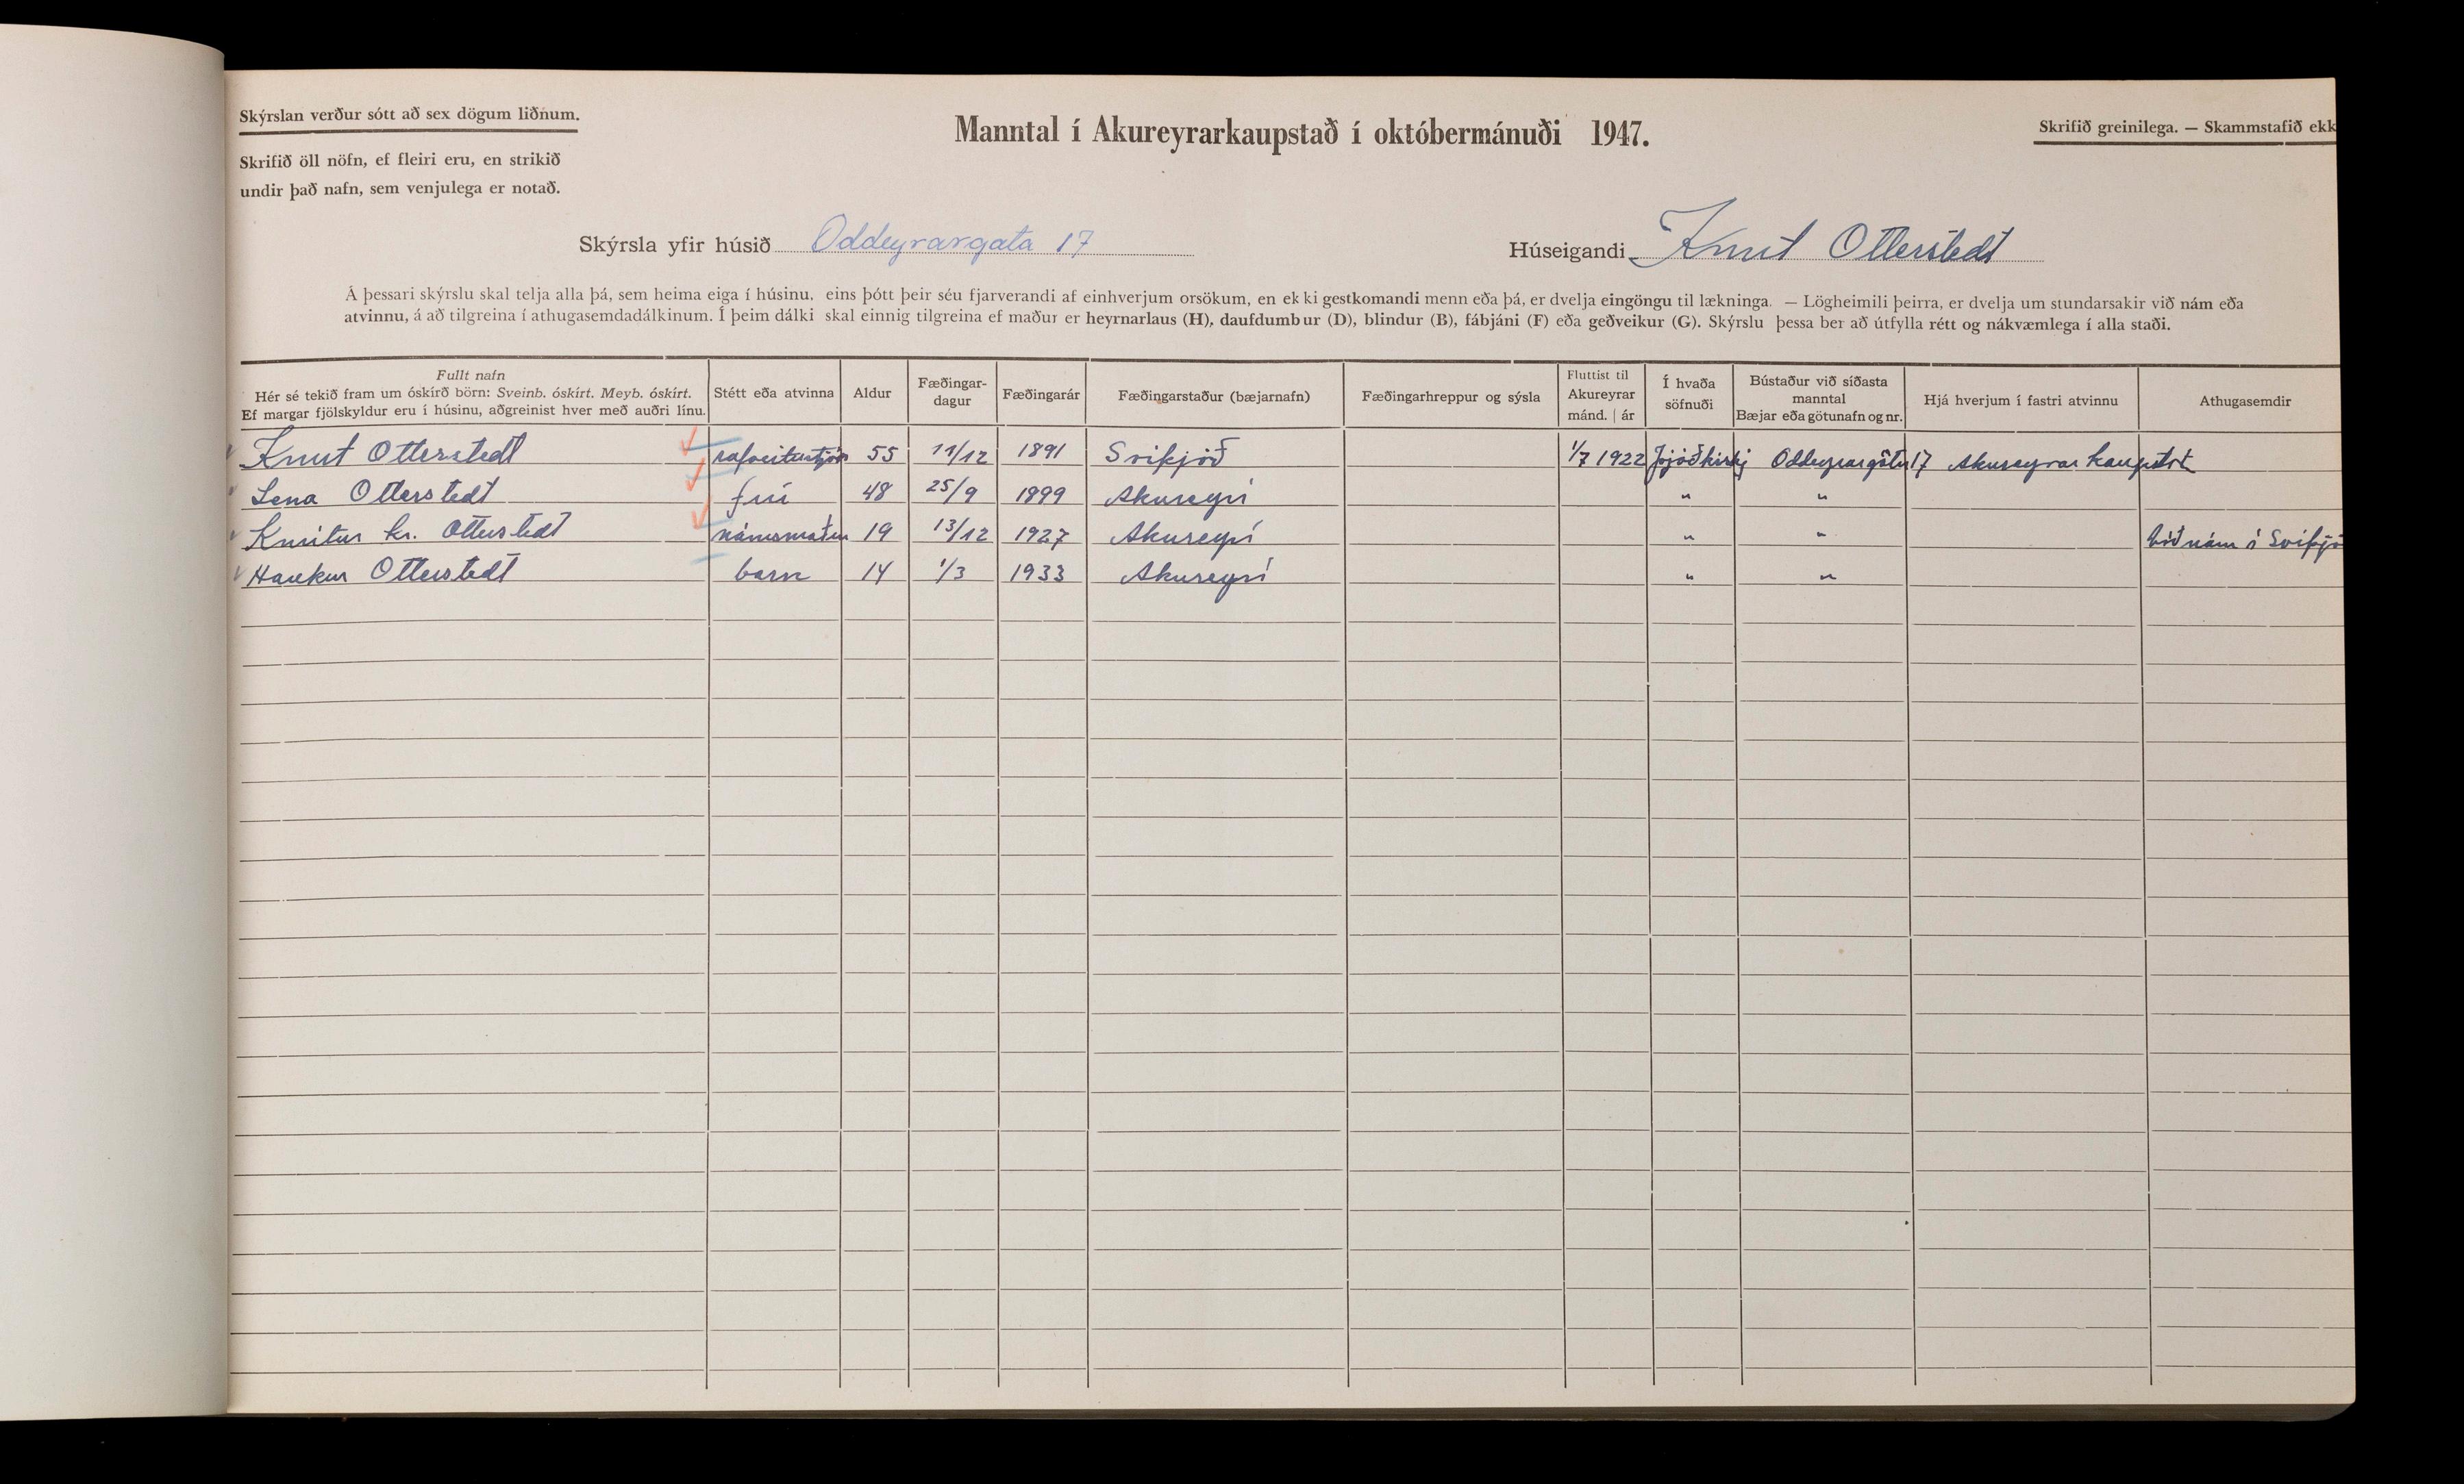 Skýrslan verður sótt að sex dögum liðnum.
Skrifið öll nöfn, ef fleiri eru, en strikið
undir það nafn, sem venjulega er notað.
Manntal í Akureyrarkaupstað í októbermánuði 1947.
Skrifið greinilega. — Skammstafið ekk
Skýrsla yfir húsið Oddeyrargata 17
Húseigandi Knut Otterstedt
Á þessari skýrslu skal telja alla þá, sem heima eiga í húsinu, eins þótt þeir séu fjarverandi af einhverjum orsökum, en ekki gestkomandi menn eða þá, er dvelja eingöngu til lækninga. — Lögheimili þeirra, er dvelja um stundarsakir við nám eða
atvinnu, á að tilgreina í athugasemdadálkinum. Í þeim dálki skal einnig tilgreina ef maður er heyrnarlaus (H), daufdumbur (D), blindur (B), fábjáni (F) eða geðveikur (G). Skýrslu þessa ber að útfylla rétt og nákvæmlega í alla staði.
Fullt nafn
Hér sé tekið fram um óskírð börn: Sveinb. óskírt. Meyb. óskírt.
Ef margar fjölskyldur eru í húsinu, aðgreinist hver með auðri línu.
Stétt eða atvinna
Aldur
Fæðingar-
dagur
Fæðingarár
Fæðingarstaður (bæjarnafn)
Fæðingarhreppur og sýsla
Fluttist til
Akureyrar
mánd. | ár
Í hvaða
söfnuði
Bústaður við síðasta
manntal
Bæjar eða götunafn og nr.
Hjá hverjum í fastri atvinnu
Athugasemdir
Knut Otterstedt rafveitustjóri 55 11/12 1891 Svíþjóð 1/7 1922 Þjóðkirkj Oddeyrargötu 17 Akureyrar kaupst
Lena Otterstedt frú 48 25/9 1899 Akureyri " "
Knútur kr. Otterstedt námsmaður 19 13/12 1927 Akureyri " " við nám í Svíþjó
Haukur Otterstedt barn 14 1/3 1933 Akureyri " "